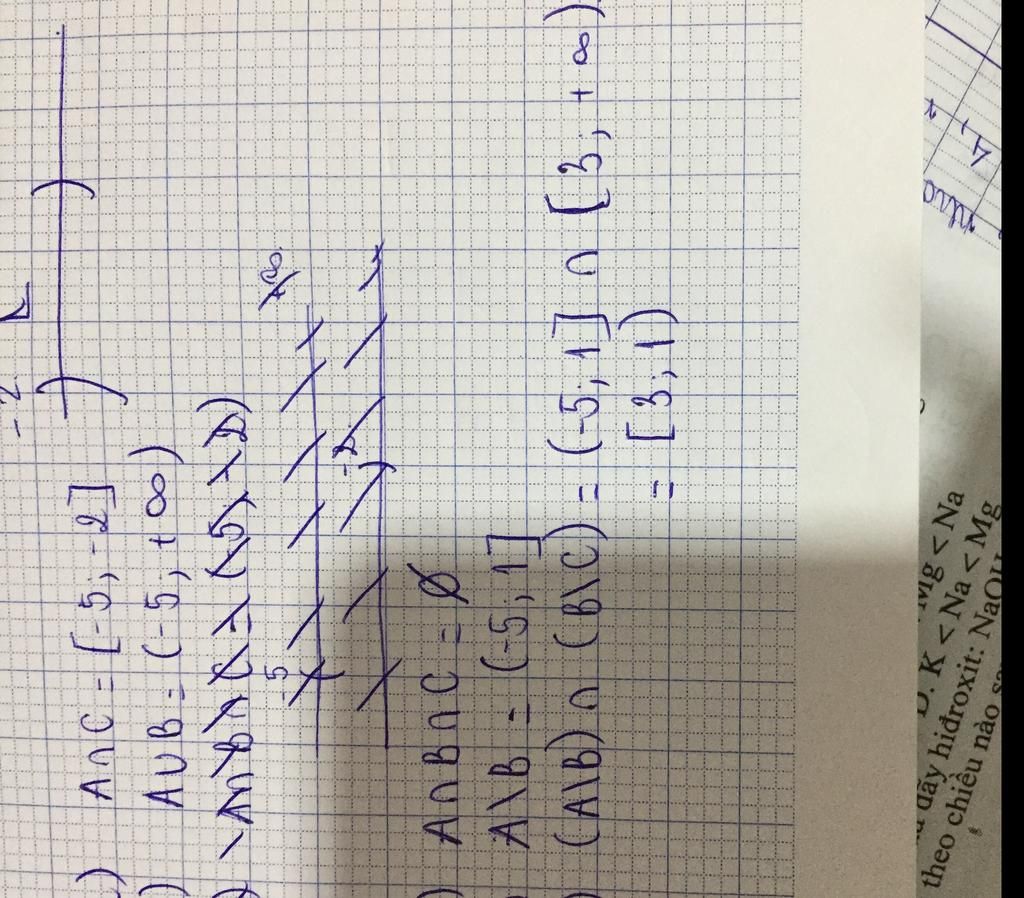 -2
) A∩C = [-5; -2]
) A∪B = (-5; +∞)
) A∩B∩C = (-5; -2)
+∞
-5
-2
) A∩B∩C = Ø
A\B = (-5; 1]
) (A\B) ∩ (B\C) = (-5; 1] ∩ [3; +∞)
= [3; 1)
D. K < Na < Mg
Mg < Na
dãy hiđroxit: NaOH
theo chiều nào